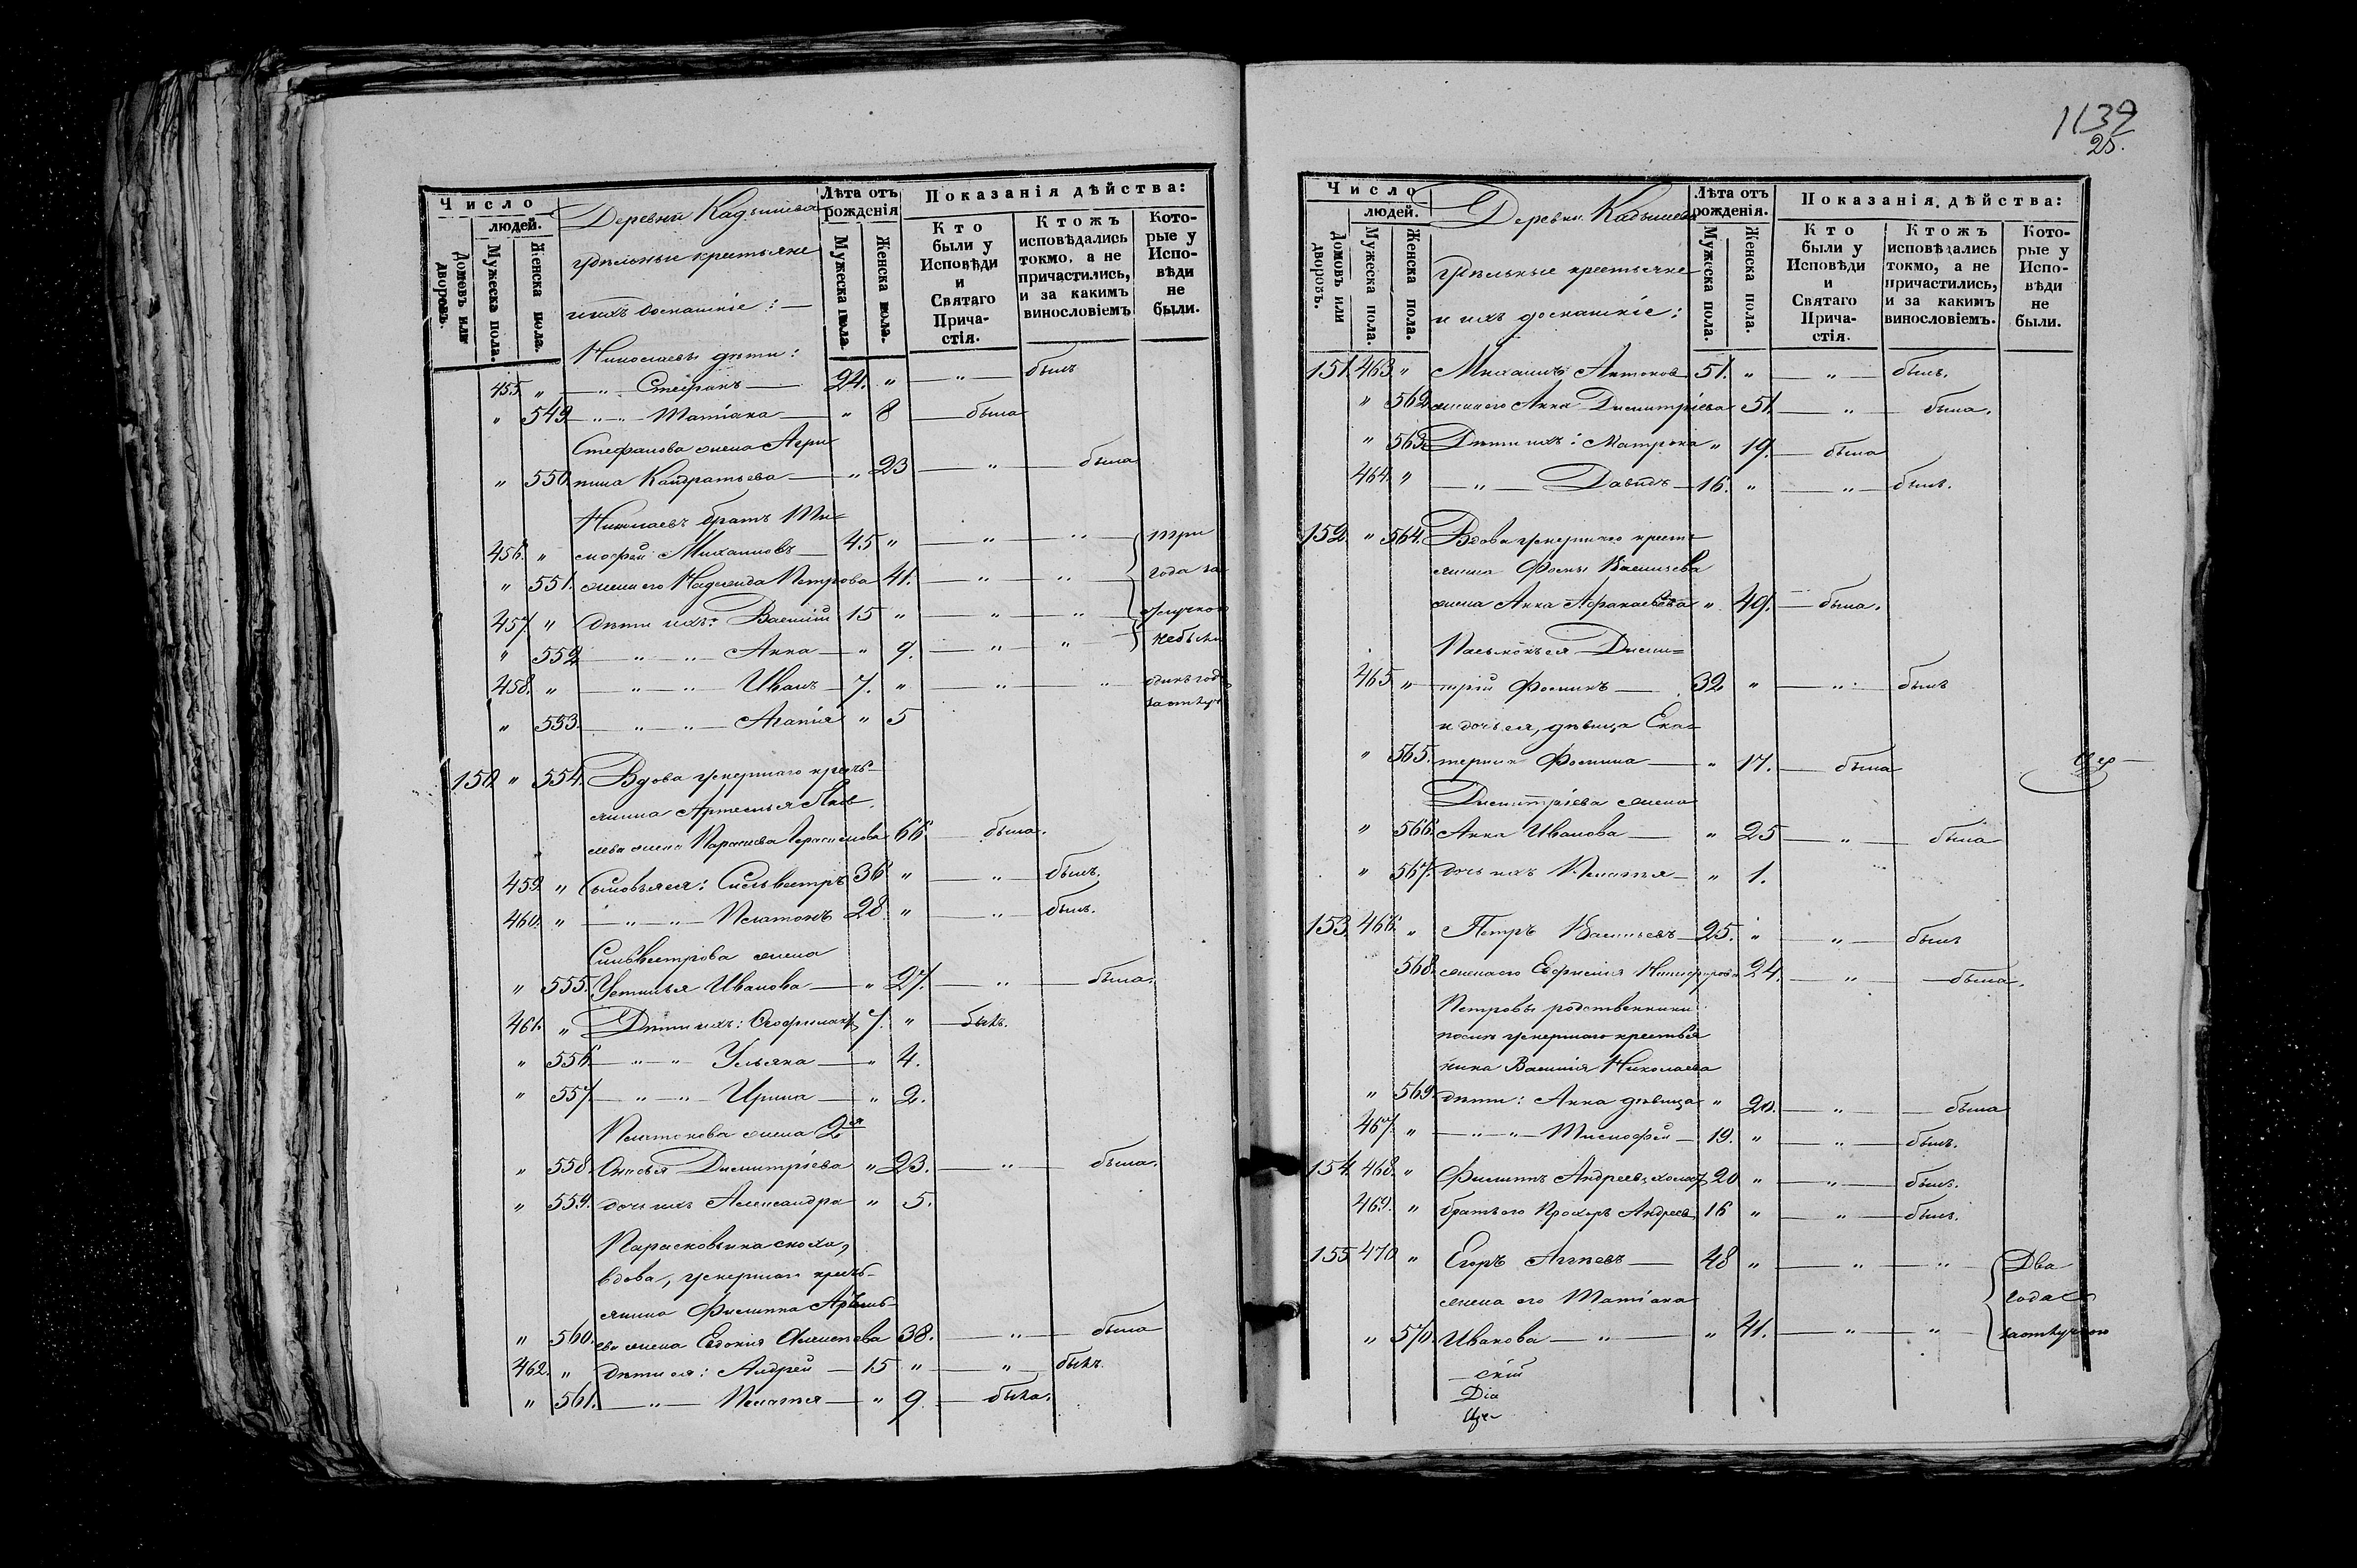 1139
25.
Число
людей.
Домовъ или дворовъ.
Мужеска пола.
Женска пола.
Деревни Кадышева
удѣльные крестьяне
и ихъ домашніе:
Лѣта отъ рожденія
Мужеска пола.
Женска пола.
Показанія дѣйства:
Кто были у Исповѣди и Святаго Причастія.
Ктожъ исповѣдались токмо, а не причастились, и за какимъ винословіемъ
Которые у Исповѣди не были.
Николаевы дѣти:
455. " — " — Стефанъ — 24. " — " — былъ
" 549. — " — " — Матіана — " 8 — была
Стефанова жена Агри
" 550. пина Кандратьева — " 23 — " — была
Николаевъ братъ Ти=
456. " мофей Михаиловъ — 45 " — " — " — три
" 551. жена его Надежида Петрова 41. — " — " года за
457. " дѣти ихъ: Василій 15 " — " — " отлучкою
" 552 — " — " — Анна — " 9. — " — " небыли
458. " — " — " — Иванъ — 7. " — " — " одинъ годъ
за отлуч
" 553. — " — " — Агапія " 5
150. " 554. Вдова умершаго кресть-
янина Артемья Яков
лева жена Параскева Герасимова 66 — была.
459. " Сыновья ея: Сильвестръ 36 " — " — былъ.
460. " — " — " — Платонъ 28. " — " — былъ.
Сильвестрова жена
" 555. Устинья Иванова — " 27. — " — была.
461. " Дѣти ихъ: Феофилактъ 7. " — былъ.
" 556. — " — " Ульяна — " 4.
" 557. — " — " — Ирина — " 2.
Платонова жена 2я
" 558. Онисья Димитріева " 23. — " — была.
" 559. дочь ихъ Александра " 5.
Парасковьина сноха,
вдова, умершаго кресть-
янина Филиппа Артемь-
" 560. ева жена Евдокія Алексѣева 38. — " — была
462. " дѣти ея: Андрей — 15 " — " — былъ.
" 561. — " — Пелагея — " 9 — была.
Число
людей.
Домовъ или дворовъ.
Мужеска пола.
Женска пола.
Деревни Кадышева
удѣльные крестьяне
и ихъ домашніе:
Лѣта отъ рожденія.
Мужеска пола.
Женска пола.
Показанія дѣйства:
Кто были у Исповѣди и Святаго Причастія.
Ктожъ исповѣдались токмо, а не причастились, и за какимъ винословіемъ.
Которые у Исповѣди не были.
151. 463. " Михаилъ Антонов 51. " — " — былъ.
" 562. жена его Анна Димитріева 51. — " — была.
" 563. Дѣти ихъ: Матрона " 19. — была
464. " — " — Давидъ — 16. " — " — былъ.
152. " 564. Вдова умершаго кресть=
янина Фомы Васильева
жена Анна Афанасьева " 49. — была.
Пасынокъ ея Дими=
465. " трій Фоминъ — 32 " — " — былъ
и дочь ея, дѣвица Ека=
" 565. терина Фомина — " 17. — была
Цер
Димитріева жена
" 566. Анна Иванова — " 25 — " — была
" 567. дочь ихъ Пелагея — " 1.
153. 466. " Петръ Васильевъ — 25. " — " — былъ
568. жена его Евфимія Никифорова 24. — " — была.
Петровы родственники
послѣ умершаго крестья
нина Василія Николаева
" 569. дѣти: Анна дѣвица " 20. — " — была
467. " — " — " — Тимофей — 19. " — " — былъ.
154. 468. " Филиппъ Андреевъ, холост 20 " — " — былъ.
469. " братъ его Прохоръ Андреев 16 " — " — былъ.
155 470 " Егоръ Агѣевъ — 48 " — " — " Два
жена его Татіана года
" 570. Иванова — " — " 41. — " — " за отлучкою
скій
Діа
Це